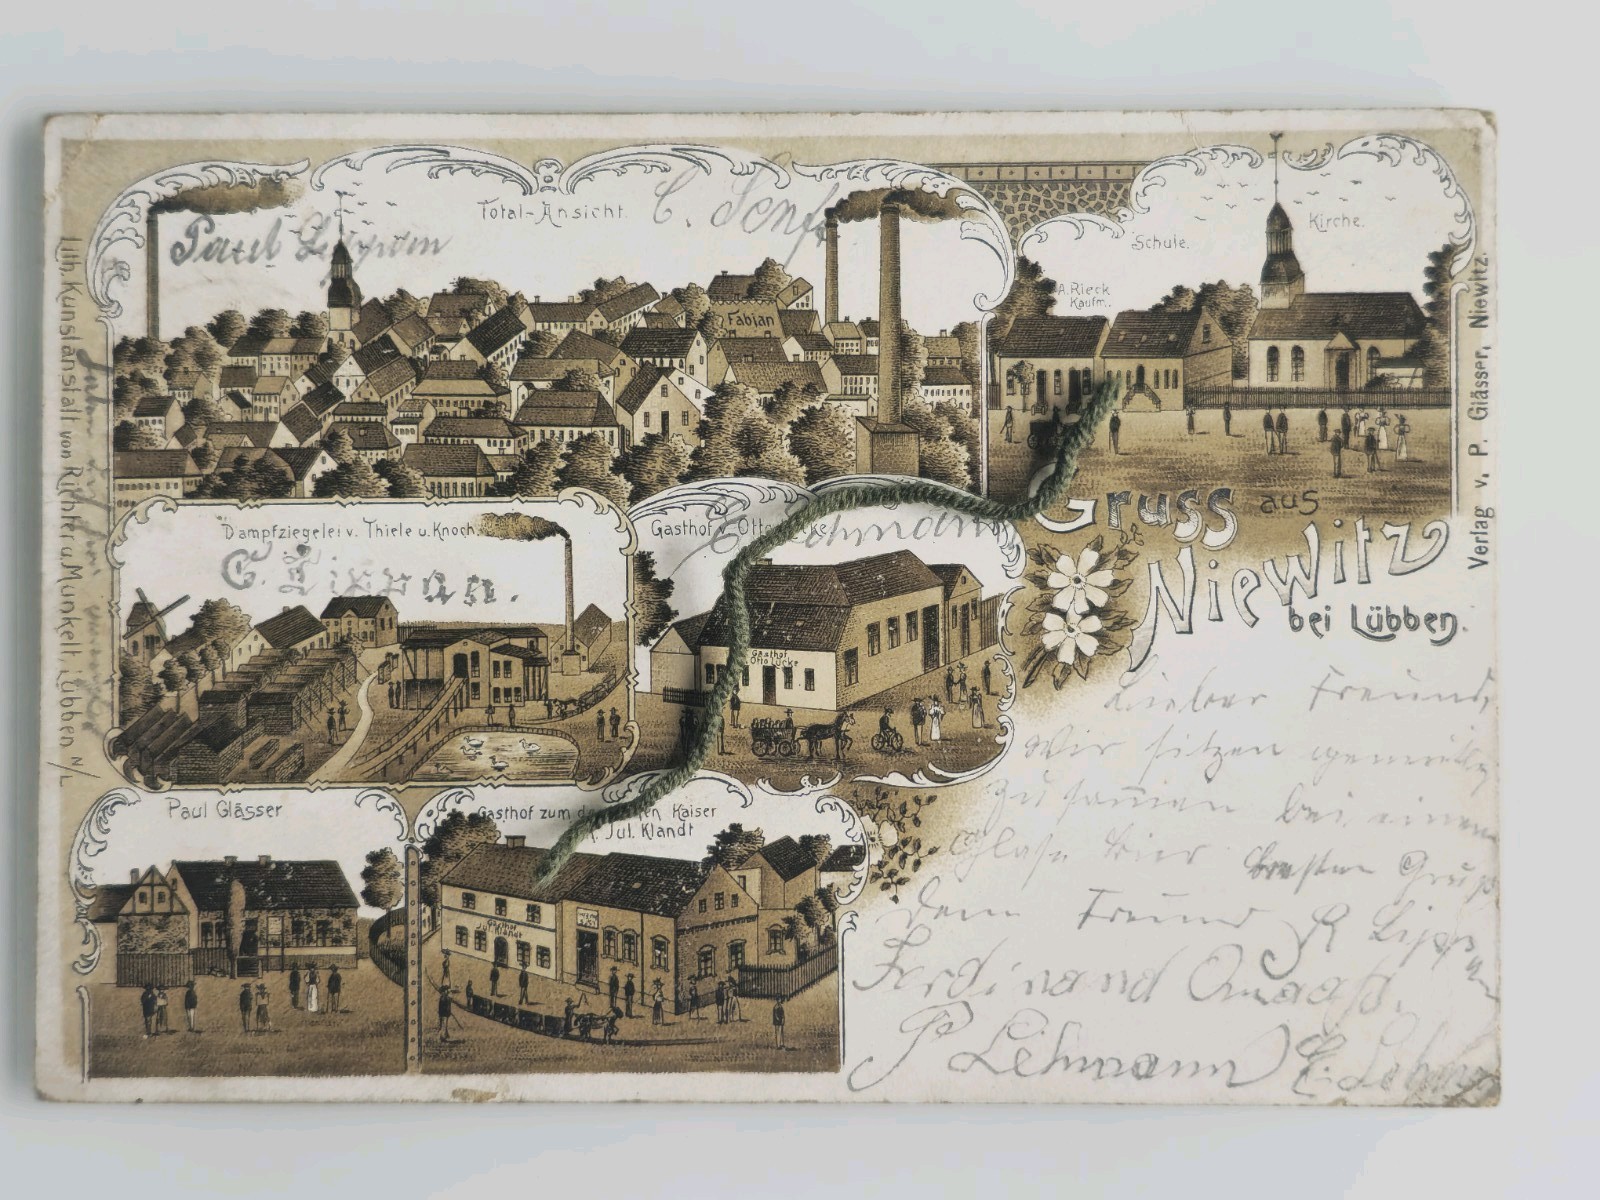 Total-Ansicht.
C. Senf
Paul
Fabian
Schule.
Kirche.
A. Rieck
Kaufm.
Dampfziegelei v. Thiele u. Knoch.
Gasthof v. Otto
E. Lehmann
Gasthof
Otto Lücke
Gruss aus
Niewitz
bei Lübben.
Lieber Freund,
Wir sitzen
zusammen bei einem
Glase Bier besten Gruß
Dein Freund R
Ferdinand
P Lehmann E. Lehm
Paul Glässer
Gasthof zum Kaiser
Jul. Klandt
Gasthof
Jul. Klandt
Lith. Kunstanstalt von Richter u. Munkelt, Lübben N/L
Verlag v. P. Glässer, Niewitz.